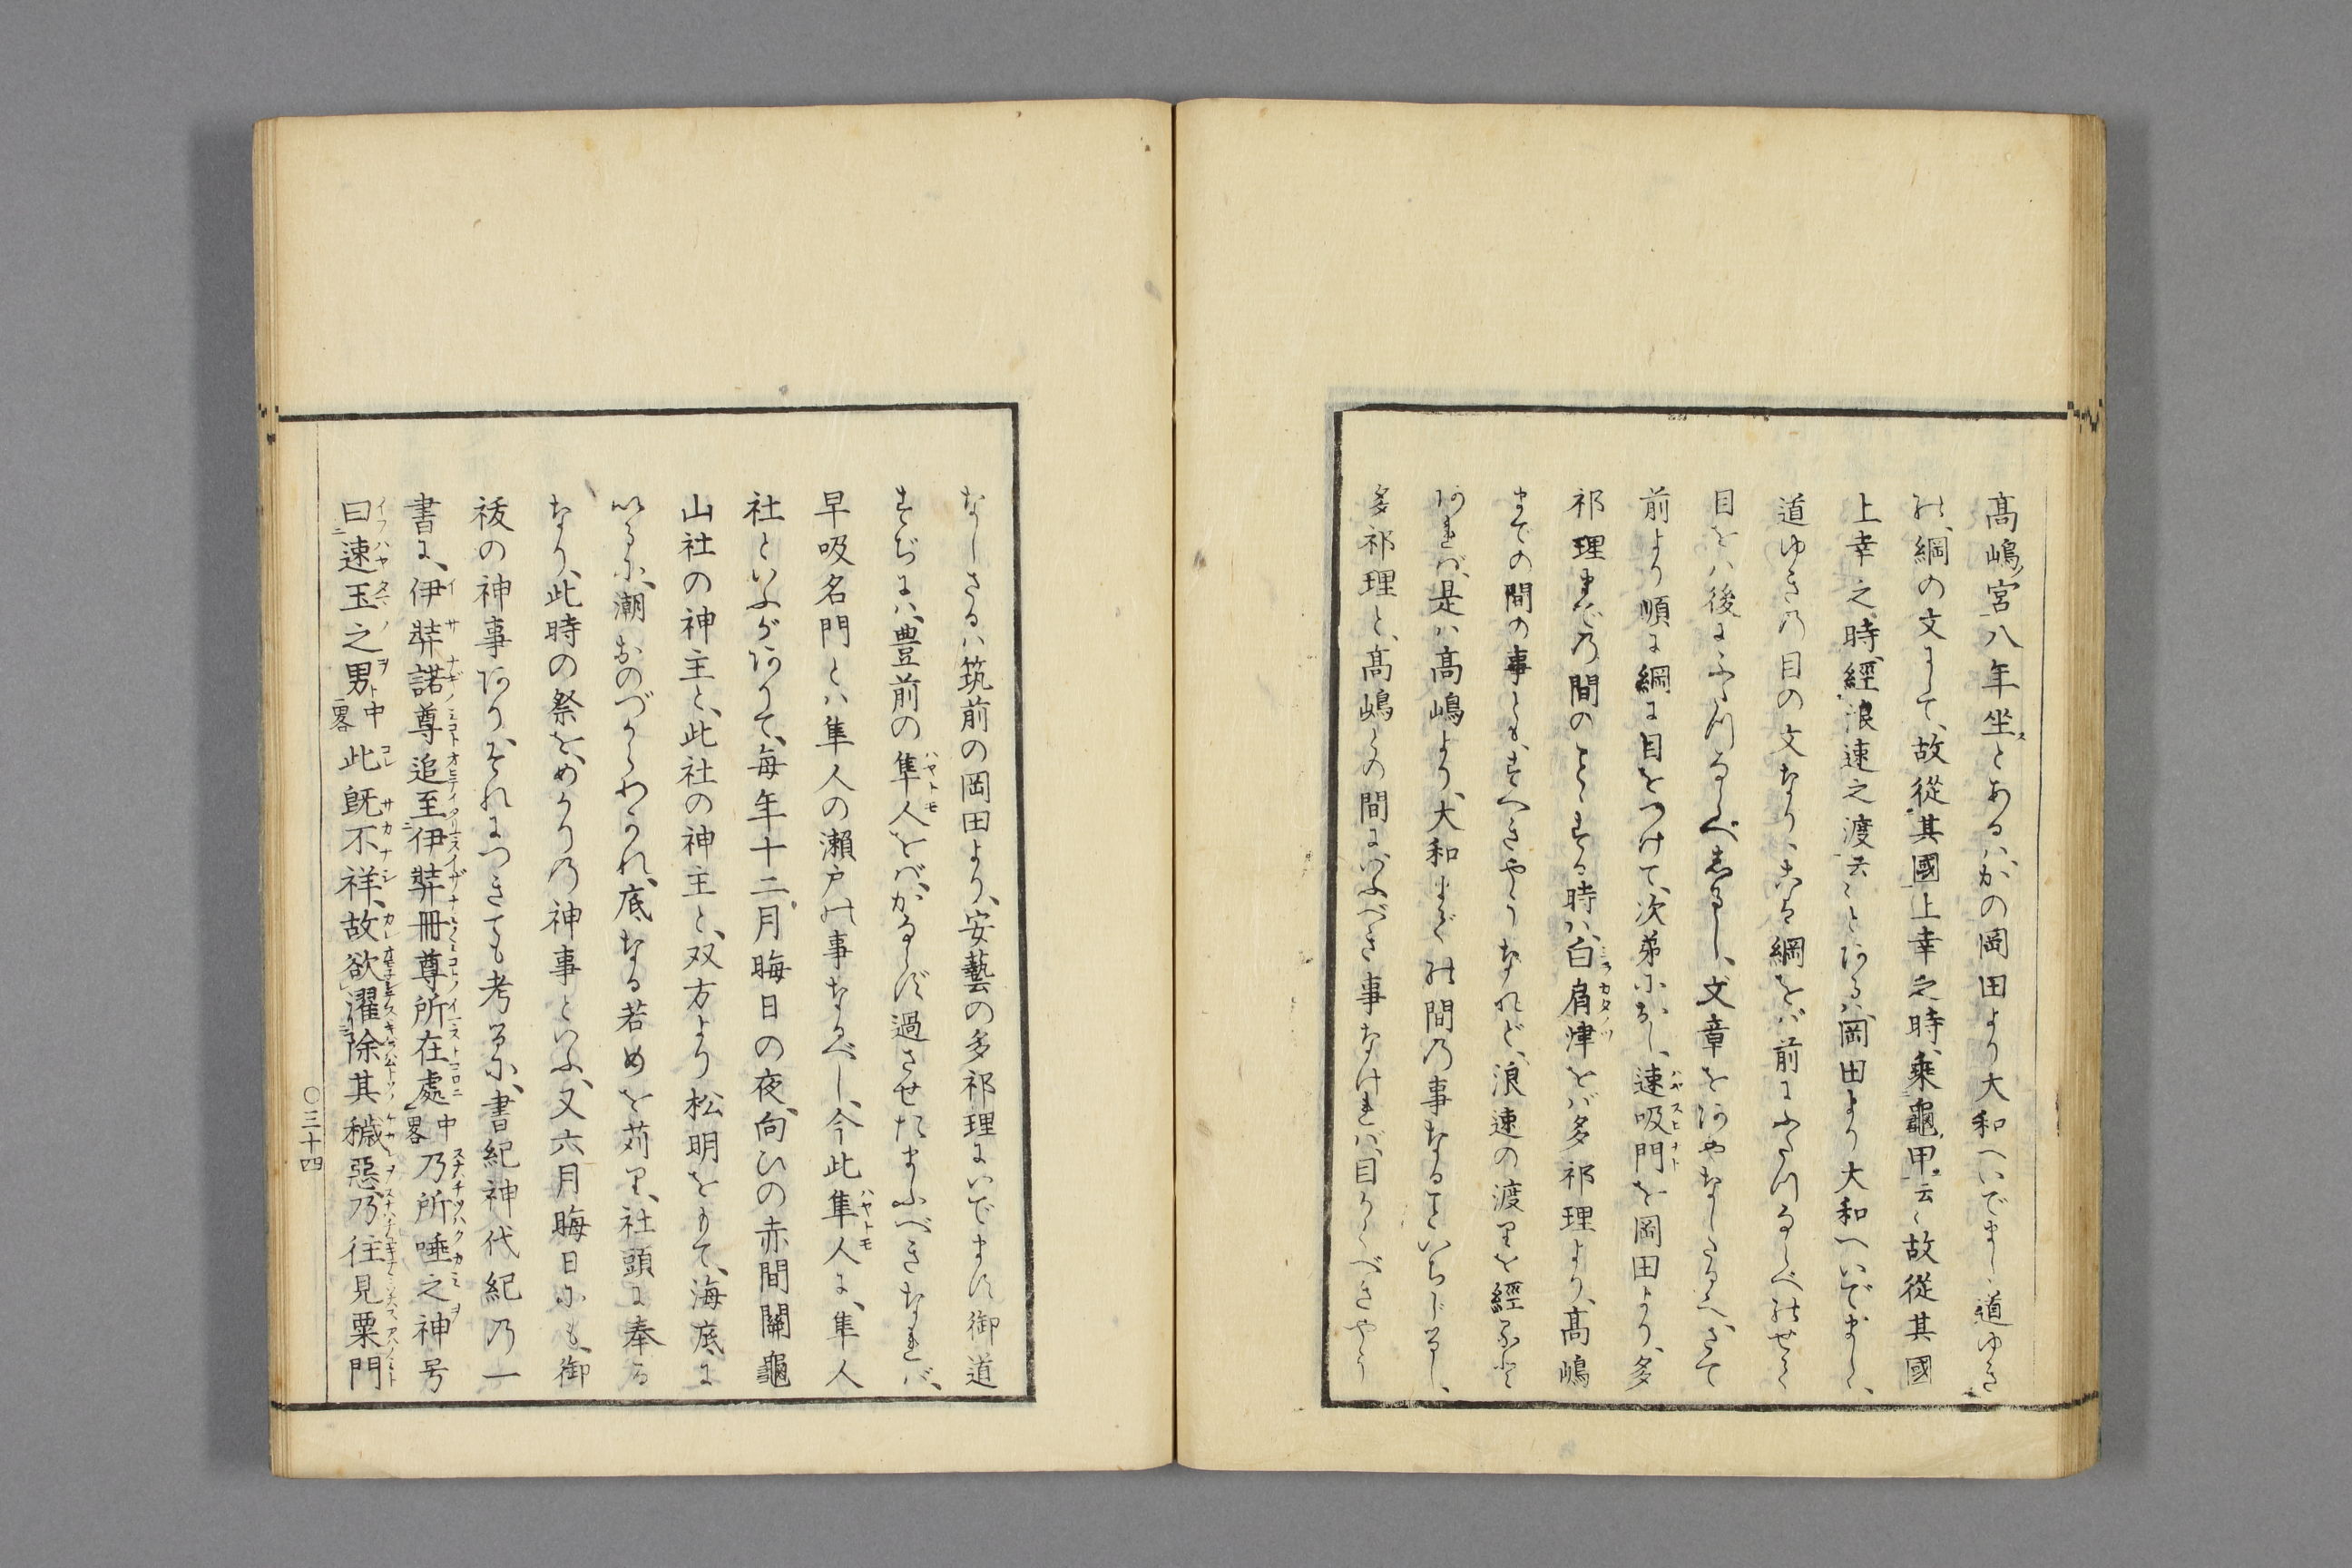 高嶋ノ宮八年坐スとあるハ、かの岡田より大和へいでましゝ道ゆき
の、綱の文にて、故從其國上幸之時、乘龜甲云々故從其國
上幸之時、經浪速之渡云々とあるハ、岡田より大和へいでましゝ、
道ゆきの目の文なり、
目をハ後に
文章をあやなし
前より順に綱に目をつけて、次第に
速吸門を岡田より、多
祁理までの間の
時ハ、白肩津をバ多祁理より、高嶋
までの間の事とも、すへきやうなれど、浪速の渡りを經
あれバ、是ハ高嶋より、大和までの間の事なることいちじるし、
多祁理と、高嶋との間にいふべき事なけれバ、目かくべきやう
なしさるハ筑前の岡田より、安藝の多祁理にいでます御道
すぢにハ、豊前の隼人をバ、かならず過させたまふべきなれバ、
早吸名門とハ隼人の瀬戸の事なるべし、今此隼人に、隼人
社といふがありて、毎年十二月晦日の夜、向ひの赤間關龜
山社の神主と、此社の神主と、双方より松明をもて、海底に
いるに、潮おのづからわかれ、底なる若めを苅り、社頭に奉る
なり、此時の祭を、めかりの神事といふ、又六月晦日にも、御
祓の神事ありおそれにつきても考るに、書紀神代紀の一
書に、伊弉諾尊追至伊弉冊尊所在處中畧乃所唾之神号
曰速玉之男中畧此既不祥、故欲濯除其穢惡、乃往見粟門
○三十四